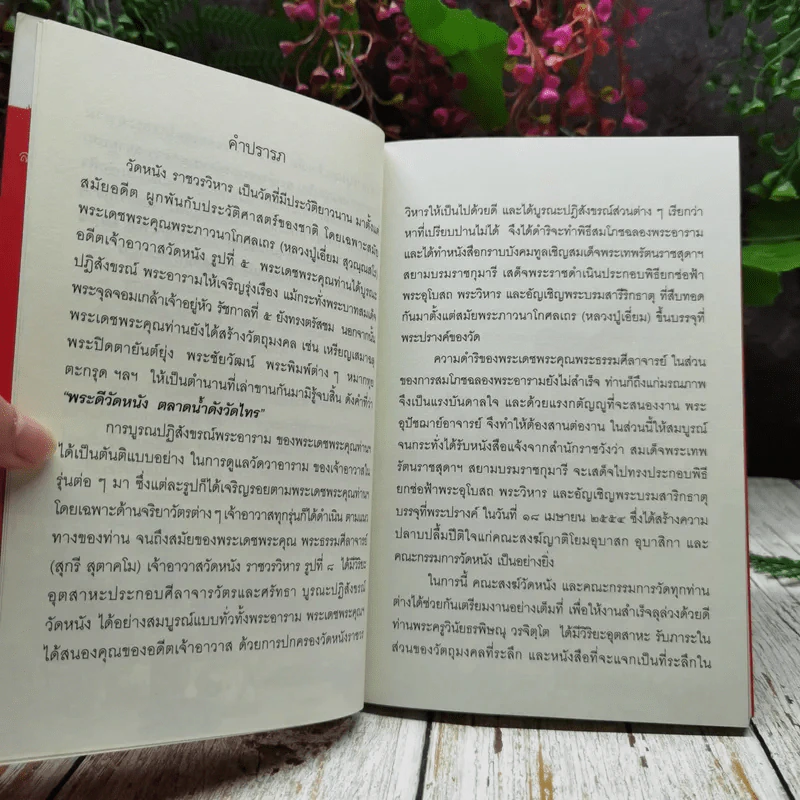 คำปรารภ
วัดหนัง ราชวรวิหาร เป็นวัดที่มีประวัติยาวนาน มาตั้งแต่
สมัยอดีต ผูกพันกับประวัติศาสตร์ของชาติ โดยเฉพาะสมัย
พระเดชพระคุณพระภาวนาโกศลเถร (หลวงปู่เอี่ยม
อดีตเจ้าอาวาสวัดหนัง รูปที่ ๕ พระเดชพระคุณท่านได้บูรณะ
ปฏิสังขรณ์ พระอารามให้เจริญรุ่งเรือง แม้กระทั่งพระบาทสมเด็จ
พระจุลจอมเกล้าเจ้าอยู่หัว รัชกาลที่ ๕ ยังทรงตรัสชม นอกจากนั้น
พระเดชพระคุณท่านยังได้สร้างวัตถุมงคล เช่น เหรียญเสมาฉลุ
พระปิดตายันต์ยุ่ง พระชัยวัฒน์ พระพิมพ์ต่าง ๆ หมากทุย
ตะกรุด ฯลฯ ให้เป็นตำนานที่เล่าขานกันมามิรู้จบสิ้น ดังคำที่ว่า
"พระดีวัดหนัง ตลาดน้ำดังวัดไทร"
การบูรณปฏิสังขรณ์พระอาราม ของพระเดชพระคุณท่านฯ
ได้เป็นต้นติแบบอย่าง ในการดูแลวัดวาอาราม ของเจ้าอาวาสใน
รุ่นต่อ ๆ มา ซึ่งแต่ละรูปก็ได้เจริญรอยตามพระเดชพระคุณท่าน
โดยเฉพาะด้านจริยาวัตรต่างๆ เจ้าอาวาสทุกรุ่นก็ได้ดำเนิน ตามแนว
ทางของท่าน จนถึงสมัยของพระเดชพระคุณ พระธรรมศีลาจารย์
(สุกรี สุตาคโม) เจ้าอาวาสวัดหนัง ราชวรวิหาร รูปที่ ๘ ได้มีวิริยะ
อุตสาหะประกอบศีลาจารวัตรและศรัทธา บูรณะปฏิสังขรณ์
วัดหนัง ได้อย่างสมบูรณ์แบบทั่วทั้งพระอาราม พระเดชพระคุณฯ
ได้สนองคุณของอดีตเจ้าอาวาส ด้วยการปกครองวัดหนังราชวร
วิหารให้เป็นไปด้วยดี และได้บูรณะปฏิสังขรณ์ส่วนต่าง ๆ เรียกว่า
หาที่เปรียบปานไม่ได้ จึงได้ดำริจะทำพิธีสมโภชฉลองพระอาราม
และได้ทำหนังสือกราบบังคมทูลเชิญสมเด็จพระเทพรัตนราชสุดาฯ
สยามบรมราชกุมารี เสด็จพระราชดำเนินประกอบพิธียกช่อฟ้า
พระอุโบสถ พระวิหาร และอัญเชิญพระบรมสารีริกธาตุ ที่สืบทอด
กันมาตั้งแต่สมัยพระภาวนาโกศลเถร (หลวงปู่เอี่ยม) ขึ้นบรรจุที่
พระปรางค์ของวัด
ความดำริของพระเดชพระคุณพระธรรมศีลาจารย์ ในส่วน
ของการสมโภชฉลองพระอารามยังไม่สำเร็จ ท่านก็ถึงแก่มรณภาพ
จึงเป็นแรงบันดาลใจ และด้วยแรงกตัญญูที่จะสนองงาน พระ
อุปัชฌาย์อาจารย์ จึงทำให้ต้องสานต่องาน ในส่วนนี้ให้สมบูรณ์
จนกระทั่งได้รับหนังสือแจ้งจากสำนักราชวังว่า สมเด็จพระเทพ
รัตนราชสุดาฯ สยามบรมราชกุมารี จะเสด็จไปทรงประกอบพิธี
ยกช่อฟ้าพระอุโบสถ พระวิหาร และอัญเชิญพระบรมสาริกธาตุ
บรรจุที่พระปรางค์ ในวันที่ ๑๘ เมษายน ๒๕๕๔ ซึ่งได้สร้างความ
ปลาบปลื้มปิติใจแก่คณะสงฆ์ญาติโยมอุบาสก อุบาสิกา และ
คณะกรรมการวัดหนัง เป็นอย่างยิ่ง
ในการนี้ คณะสงฆ์วัดหนัง และคณะกรรมการวัดทุกท่าน
ต่างได้ช่วยกันเตรียมงานอย่างเต็มที่ เพื่อให้งานสำเร็จลุล่วงด้วยดี
ท่านพระครูวินัยธรพิษณุ วรจิตฺโต ได้มีวิริยะอุตสาหะ รับภาระใน
ส่วนของวัตถุมงคลที่ระลึก และหนังสือที่จะแจกเป็นที่ระลึกใน